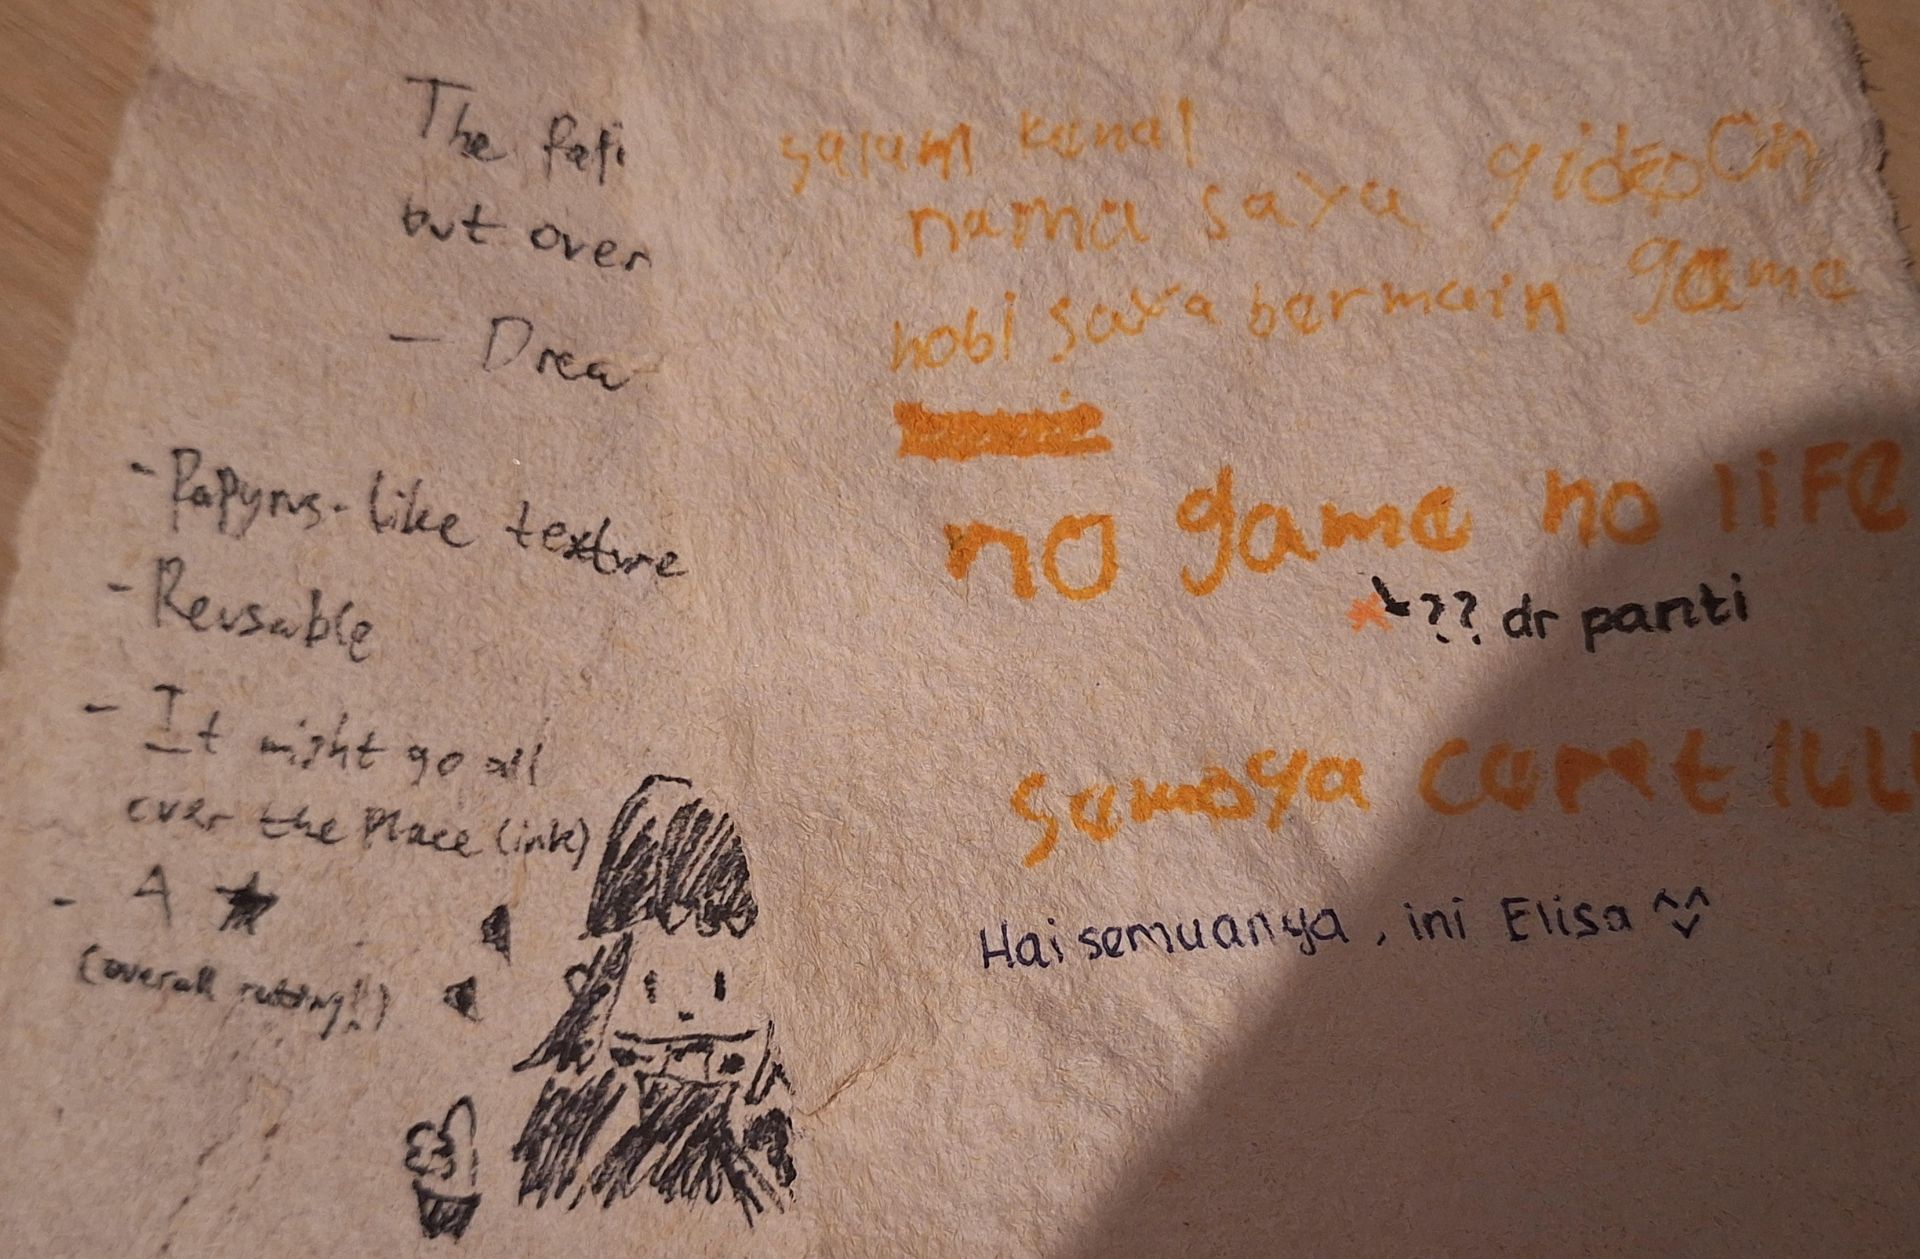 The
but over
- Drea
- Papyrus-like texture
- Reusable
- It might go all
over the place (ink)
- A ★
(overall
salam kenal
nama saya gideon
hobi saya bermain game
no game no liFe
?? dr panti
semoya
Hai semuanya, ini Elisa ^^